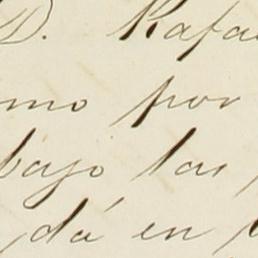 D. Rafa
mo por
bajo las
dá en